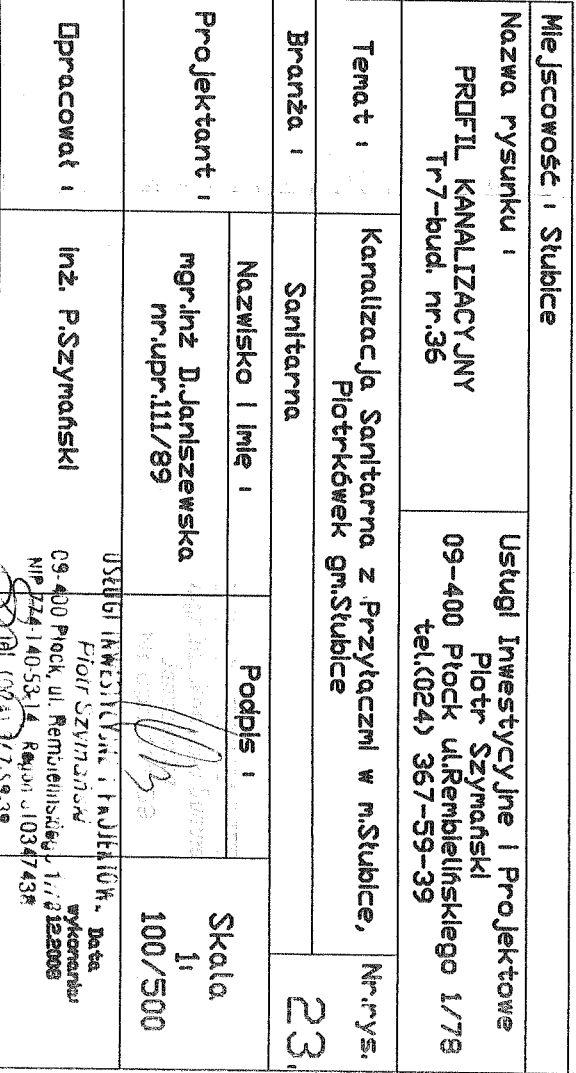 Miejscowość : Słubice
Nazwa rysunku :
PROFIL KANALIZACYJNY
Tr7-bud. nr.36
Usługi Inwestycyjne i Projektowe
Piotr Szymański
09-400 Płock ul.Rembielińskiego 1/78
tel.(024) 367-59-39
Temat :
Kanalizacja Sanitarna z Przyłączmi w m.Słubice,
Piotrkówek gm.Słubice
Nr.rys.
23.
Branża :
Sanitarna
Nazwisko i imię :
Podpis :
Skala
1:
100/500
Projektant :
mgr.inż D.Janiszewska
nr.upr.111/89
Opracował :
inż. P.Szymański
Piotr Szymański
09-400 Płock, ul. Rembielińskiego
NIP 774-140-53-14
Data
wykonania:
12.2008